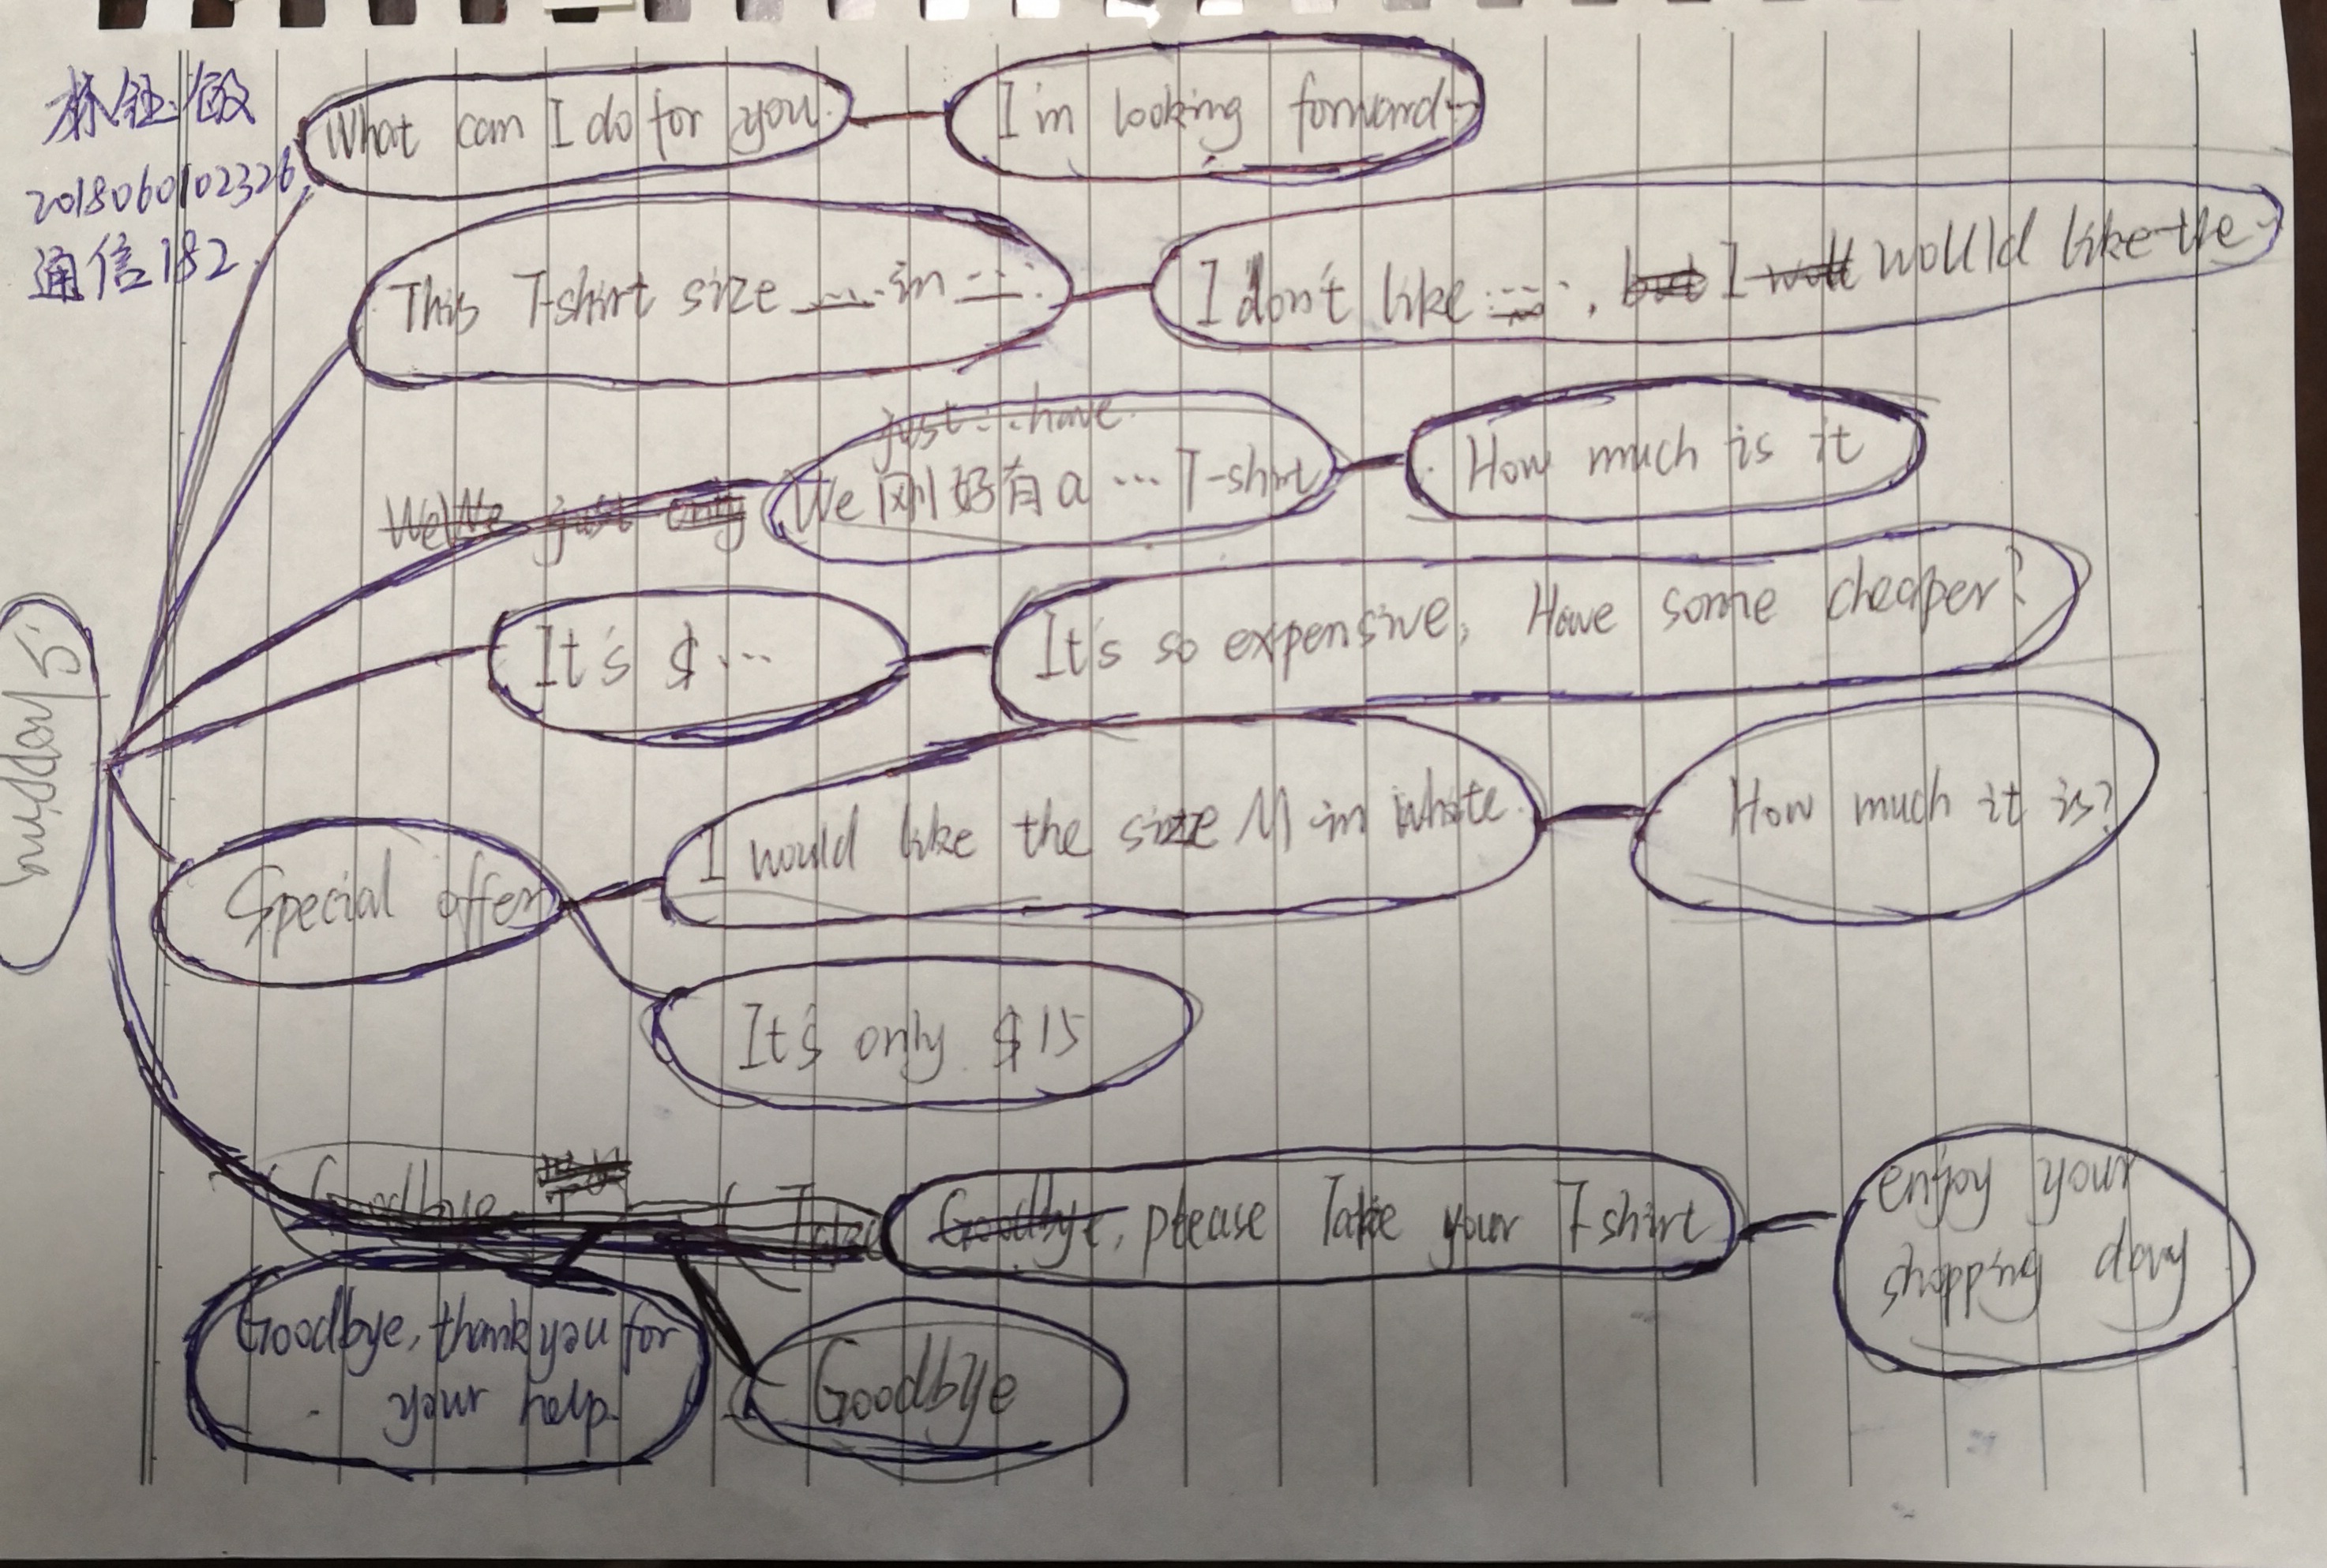 2018060102326
通信182
What can I do for you.
I'm looking forward...
This T-shirt size ... in ....
I don't like ...., but I would like the ..
just...have.
We 刚好有 a ... T-shirt
How much is it
We We just only
It's $ ...
It's so expensive, Have some cheaper?
Special offer
I would like the size M in white.
How much it is?
It's only $15
Goodbye
Take
Goodbye, please Take your T-shirt
enjoy your
shopping day
Goodbye, thank you for
your help.
Goodbye